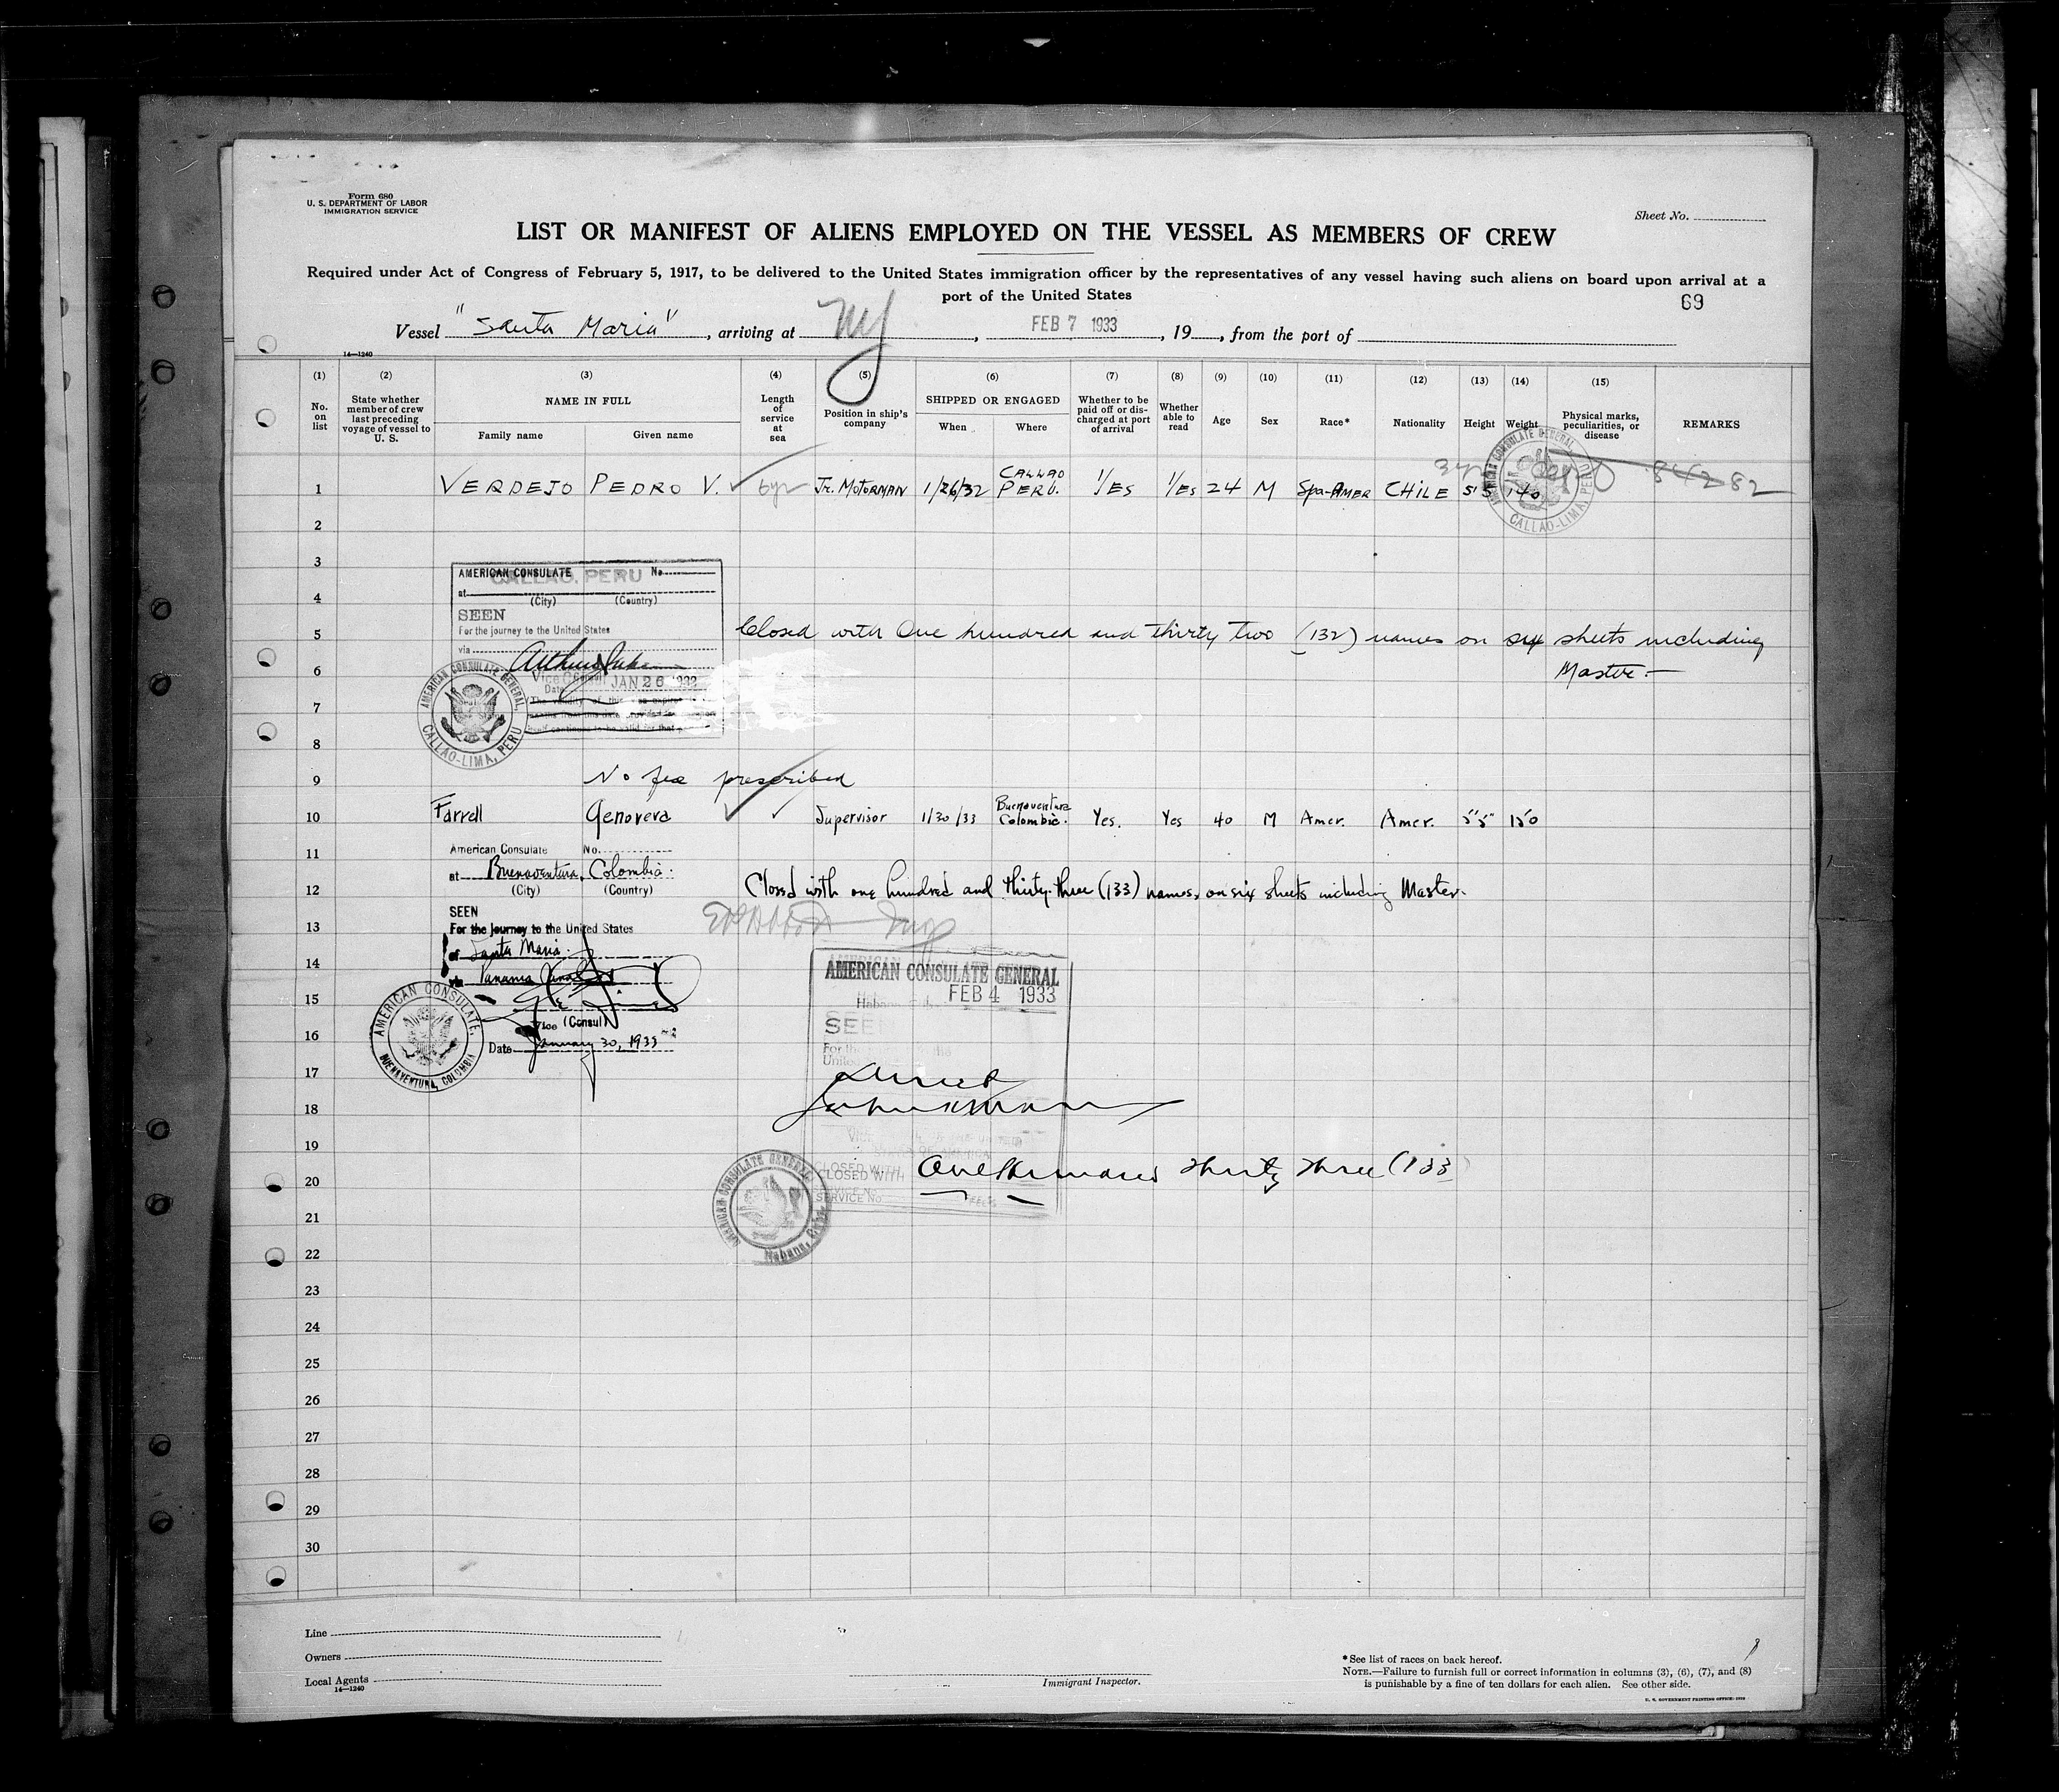 Form 680
U. S. DEPARTMENT OF LABOR
IMMIGRATION SERVICE
Sheet No.
LIST OR MANIFEST OF ALIENS EMPLOYED ON THE VESSEL AS MEMBERS OF CREW
Required under Act of Congress of February 5, 1917, to be delivered to the United States immigration officer by the representatives of any vessel having such aliens on board upon arrival at a
port of the United States
69
Vessel "Santa Maria", arriving at NY, FEB 7 1933, 19, from the port of
14—1240
(1) (2) (3) (4) (5) (6) (7) (8) (9) (10) (11) (12) (13) (14) (15)
No. on list
State whether member of crew last preceding voyage of vessel to U. S.
NAME IN FULL
Family name Given name
Length of service at sea
Position in ship's company
SHIPPED OR ENGAGED
When Where
Whether to be paid off or discharged at port of arrival
Whether able to read
Age
Sex
Race*
Nationality
Height
Weight
Physical marks, peculiarities, or disease
REMARKS
1 VERDEJO PEDRO V. 6yr Jr. MOTORMAN 1/26/32 CALLAO PERU. YES YES 24 M Spa-AMER CHILE 5'5 140
AMERICAN CONSULATE GENERAL
CALLAO-LIMA, PERU
2
3
AMERICAN CONSULATE No.
CALLAO, PERU
at
4
(City) (Country)
SEEN
5 Closed with One hundred and thirty two (132) names on six sheets including
For the journey to the United States
via
6 Master.—
Vice Consul
Date JAN 26 1933
7
AMERICAN CONSULATE GENERAL,
CALLAO-LIMA, PERU
8
9 No fee prescribed
10 Farrell Genovera Supervisor 1/30/33 Buenaventura Colombia. Yes. Yes 40 M Amer. Amer. 5'5" 150
11 American Consulate No.
at Buenaventura, Colombia.
12 (City) (Country) Closed with one hundred and thirty-three (133) names, on six sheets including Master.
SEEN
13 For the journey to the United States
of Santa Maria
14
via Panama Canal
AMERICAN CONSULATE GENERAL
FEB 4 1933
15
Habana
AMERICAN CONSULATE,
BUENAVENTURA, COLOMBIA
Vice (Consul)
SEE
16
Date January 30, 1933
17
18
19
CLOSED WITH
CLOSED WITH
One Hundred Thirty Three (133
20
SERVICE No
AMERICAN CONSULATE GENERAL
Habana, Cuba
21
22
23
24
25
26
27
28
29
30
Line
Owners
Local Agents
14—1240
Immigrant Inspector.
*See list of races on back hereof.
NOTE.—Failure to furnish full or correct information in columns (3), (6), (7), and (8)
is punishable by a fine of ten dollars for each alien. See other side.